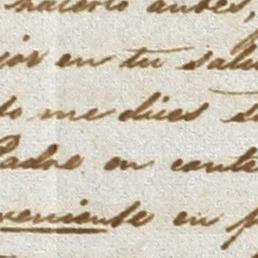 hacerlo antes,
jor en tu salu
do me dices se
Padre en conte
veniente en p